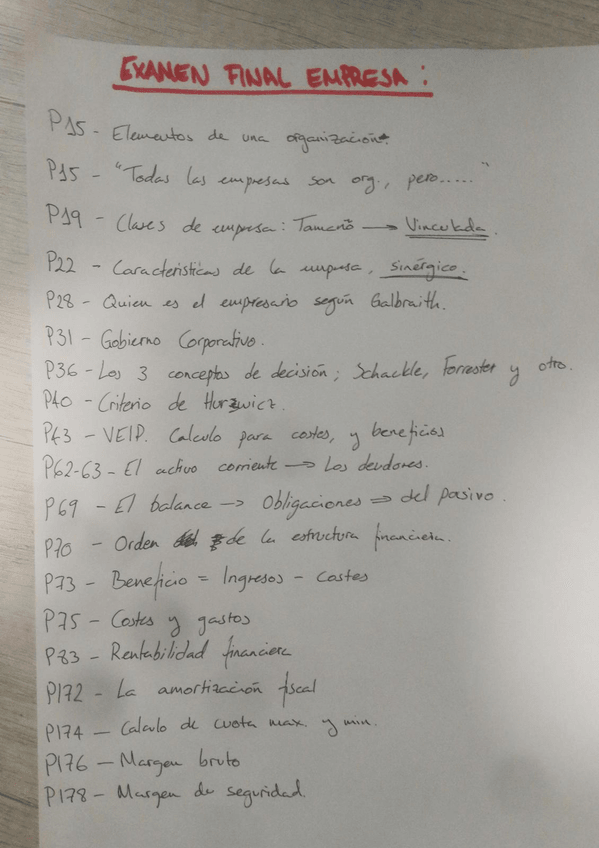 EXAMEN FINAL EMPRESA :
P15 - Elementos de una organización.
P15 - "Todas las empresas son org., pero....."
P19 - Clases de empresa : Tamaño → Vinculada.
P22 - Características de la empresa, sinérgico.
P28 - Quien es el empresario según Galbraith.
P31 - Gobierno Corporativo.
P36 - Los 3 conceptos de decisión; Schackle, Forrester y otro.
P40 - Criterio de Hurwicz.
P43 - VEIP. Calculo para costes, y beneficios
P62-63 - El activo corriente → Los deudores.
P69 - El balance → Obligaciones ⇒ del pasivo.
P70 - Orden de la estructura financiera.
P73 - Beneficio = Ingresos - Costes
P75 - Costes y gastos
P83 - Rentabilidad financiera
P172 - La amortización fiscal
P174 - Calculo de cuota max. y min.
P176 - Margen bruto
P178 - Margen de seguridad.